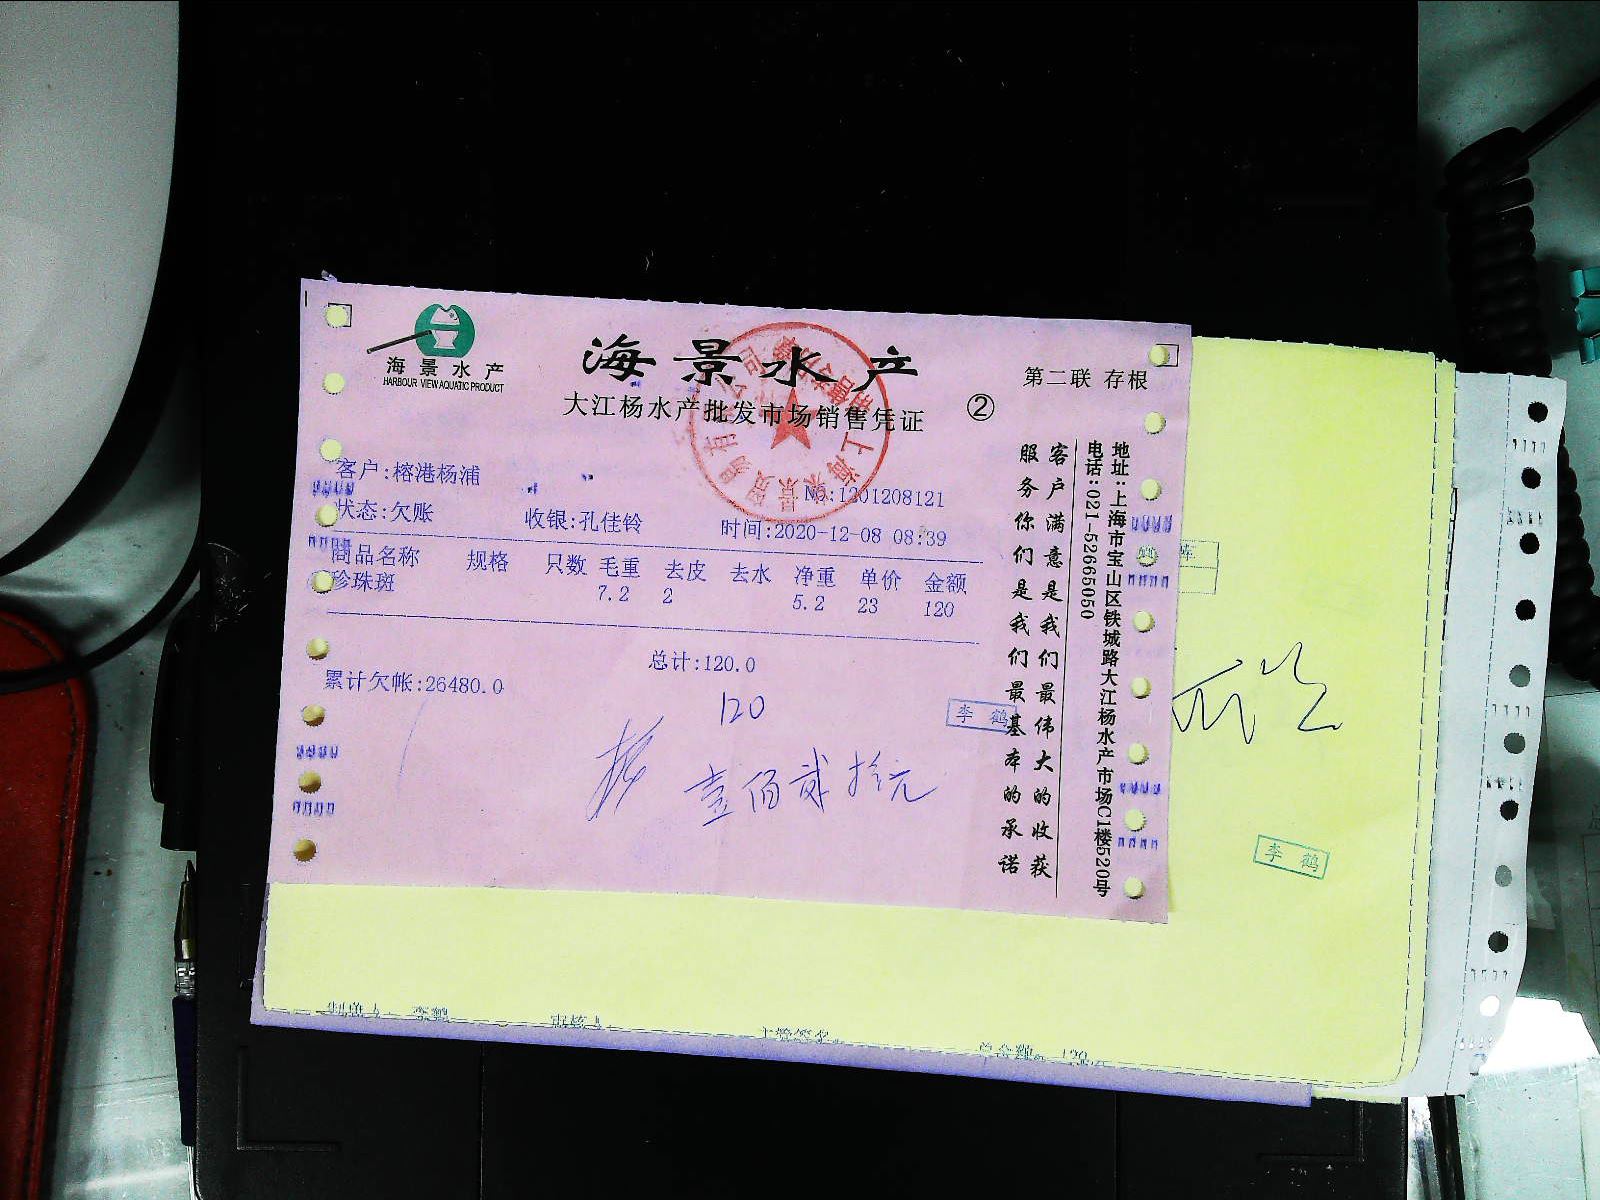 海景水产
HARBOUR VIEW AQUATIC PRODUCT
海景水产
大江杨水产批发市场销售凭证
②
第二联 存根
客户:榕港杨浦
NO:1201208121
状态:欠账 收银:孔佳铃 时间:2020-12-08 08:39
商品名称 规格 只数 毛重 去皮 去水 净重 单价 金额
珍珠斑 7.2 2 5.2 23 120
总计:120.0
累计欠帐:26480.0
120
壹佰贰拾元
李鹤
客户满意是我们最伟大的收获
服务你们是我们最基本的承诺
地址:上海市宝山区铁城路大江杨水产市场C1楼520号
电话:021-52665050
李鹤